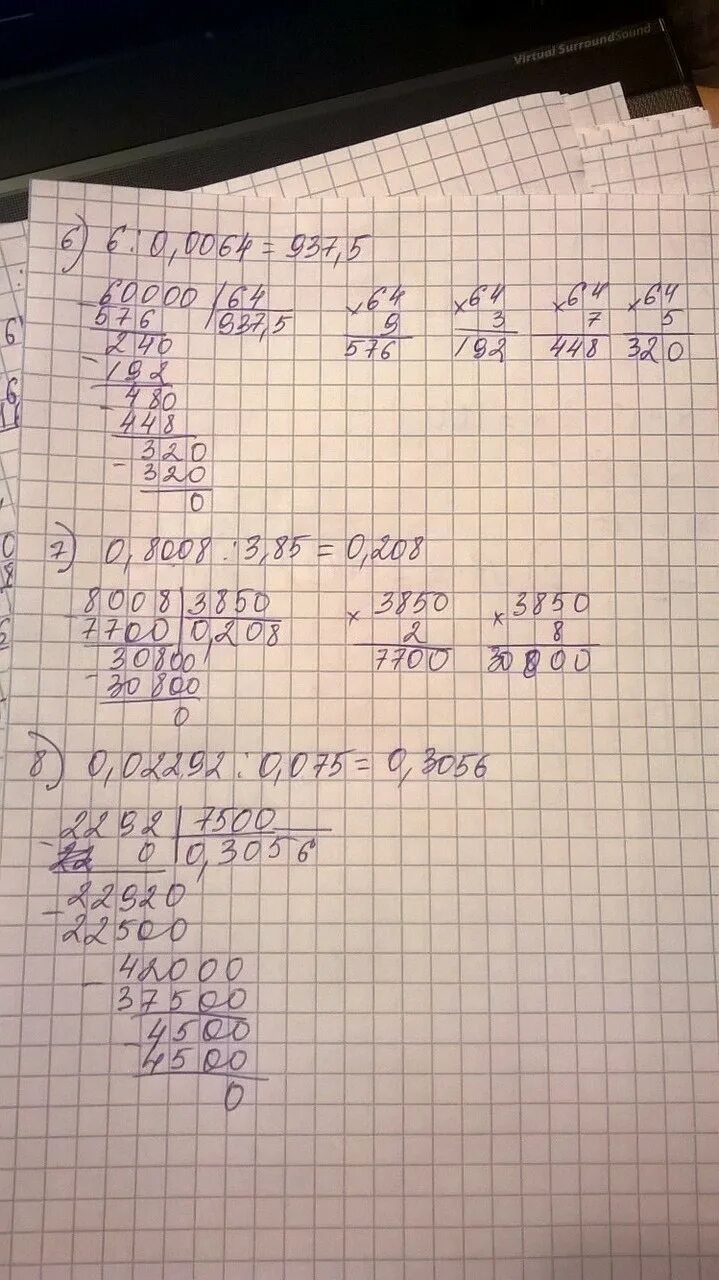 Virtual SurroundSound
6) 6 : 0,0064 = 937,5
60000 | 64
576 | 937,5
240
192
480
448
320
320
0
× 64
9
576
× 64
3
192
× 64
7
448
× 64
5
320
7) 0,8008 : 3,85 = 0,208
8008 | 3850
7700 | 0,208
30800
- 30800
0
× 3850
2
7700
× 3850
8
30800
8) 0,02292 : 0,075 = 0,3056
- 2292 | 7500
0 | 0,3056
- 22920
22500
- 42000
37500
- 4500
4500
0